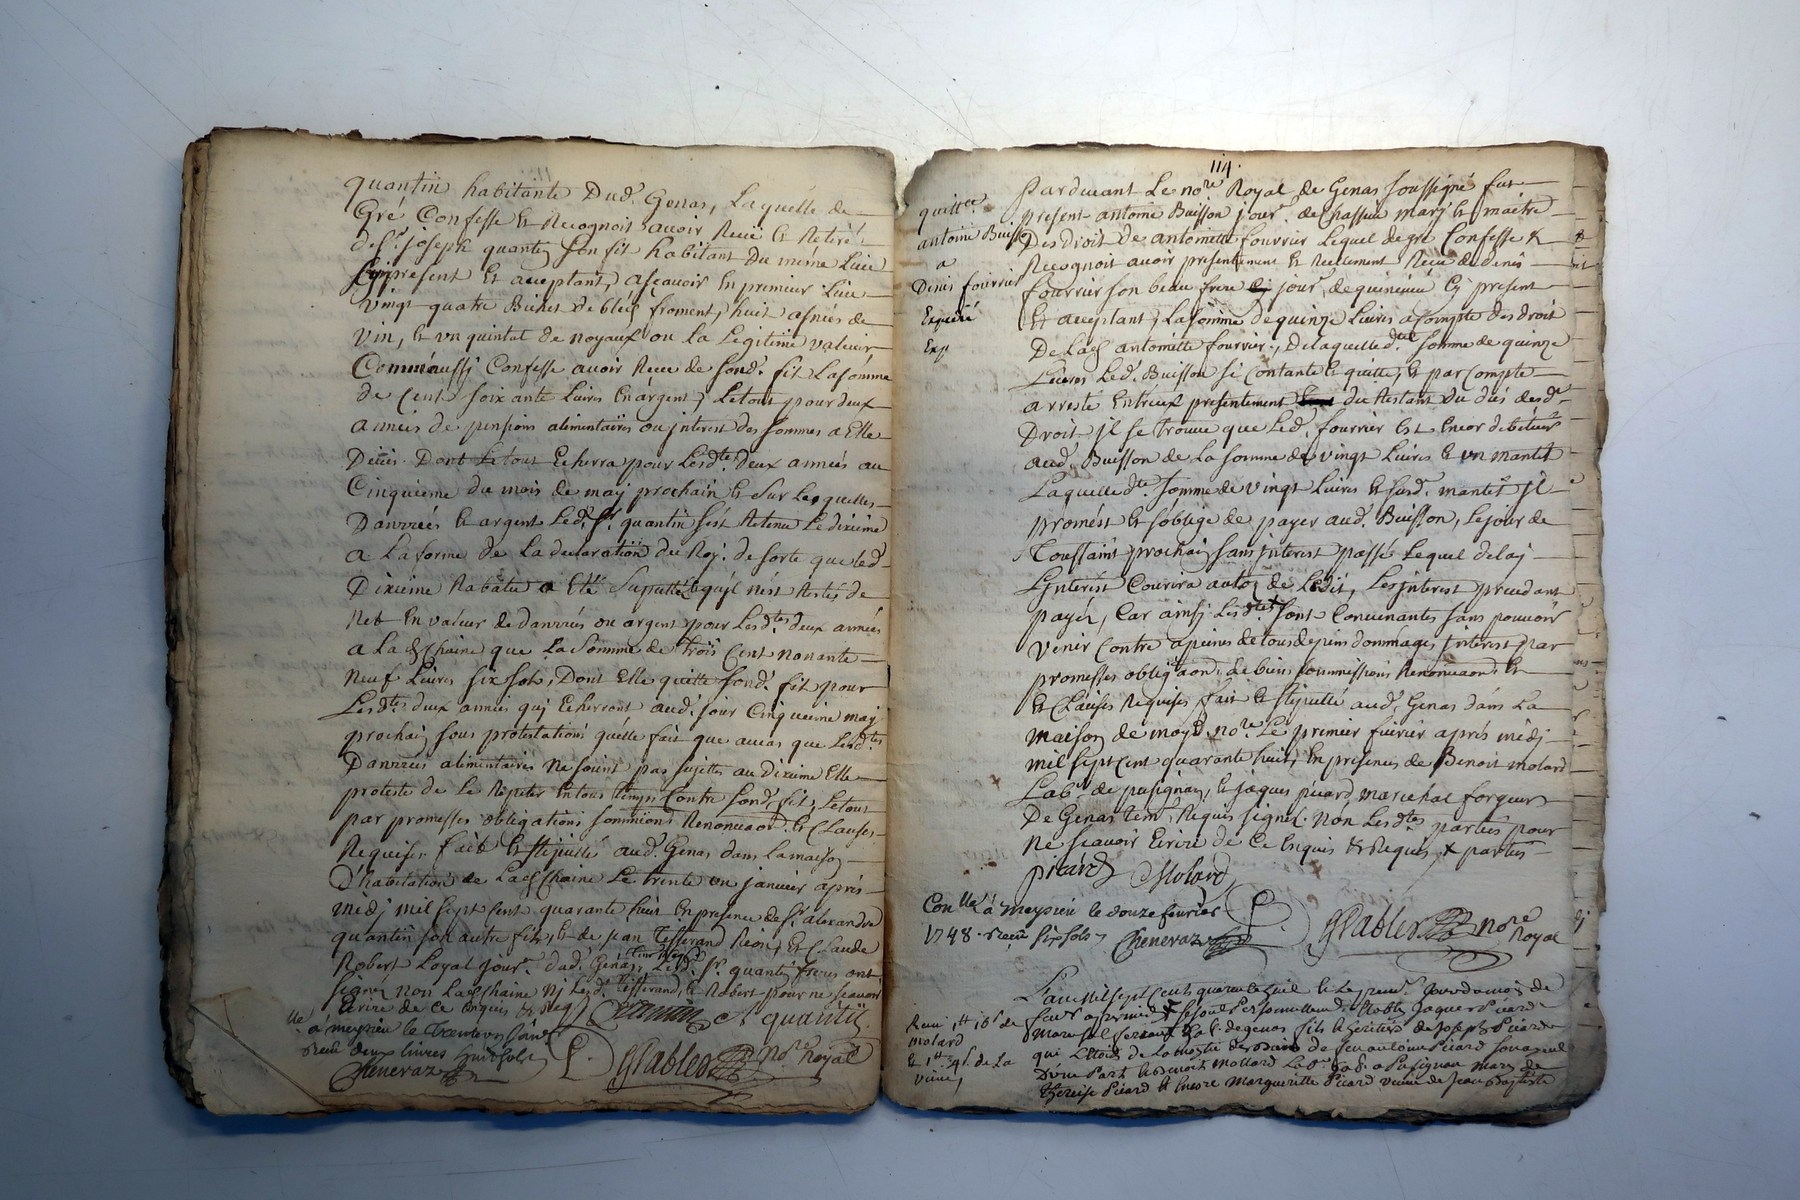 quantin habitante Dud. Genas, Laquelle de
Gré Confesse et Recognoit avoir Receu et Retiré
de Sr. joseph quantin son fils habitant du même Lieu
present et acceptant, ascavoir En premier Lieu
vingt quatre Bichet de bled froment, huit asnées de
vin, et un quintal de noyaux ou la Legitime valeur
Comm'aussy Confesse avoir Receu de sond. fil La somme
de Cent soixante Livres En argent, Le tout pour deux
années de pensions alimentaires ou interest des sommes a Elle
Deües. Dont Le tout Echerra pour Lesdtes. deux années au
Cinquieme du mois de may prochain et sur Lesquelles
Danrrées et argent Led. Sr. quantin s'est Retenu Le dixieme
a La forme de La declaration du Roy. de sorte que led.
Dixieme Rabatu a Eté il n'est Restés de
Net En valeur de danrrés ou argent pour Lesdtes deux années
a Lad. Chaine que La Somme de Trois Cent nonante
neuf Livres six sols, Dont Elle quitte sond. fil pour
Lesdtes. deux années quj Echerront aud. jour Cinquieme may
prochain sous protestations qu'elle fait que au cas que Lesdtes
Danrrées alimentaires ne soient pas sujettes au dixieme Elle
proteste de Le Repeter En tous temps Contre sond. fil, Le tout
par promesses obligations soumissions Renonceaon. et Clauses
Requises fait et stipullé aud. Genas dans La maison
D'habitation de Lad. Chaine Le trente un janvier aprés
medj mil sept cent quarante huit En presence de Sr. alexandre
quantin son autre fils, et de jean Tisserand et Claude
Robert Loyal jour. dud. Genas, Led. Sr. quantin freres ont
signé non Lad. Chaine nj Led. Tisserand, et Robert pour ne scavoir
Ecrire de Ce Enquis & Req.
quantin
a meysieu le
Receu deux livres huit sols
Cheneraz
GPabler nore royal
114.
quittce
antoine Buisson
a
Denis fourrier
Expedié
Exp
Pardevant Le nore Royal de Genas soussigné fut
present antoine Buisson jour. de Chassieu mary et maitre
Des droit de antoinette fourrier Lequel de gré Confesse &
Recognoit avoir presentement et Reelement Receu de denis
fourrier son beau frere jour. de present
Et acceptant, La somme de quinze Livres a Compte des droit
De Lad. antoinette fourrier, De laquelle dte. somme de quinze
Livres Led. Buisson se Contante et quitte, et par Compte
arresté Entr'eux presentement du Restant du dus desd.
Droit, jl se trouve que Led. fourrier Est Encor debiteur
aud. Buisson de La somme de vingt Livres et un mantet
Laquelle dte. somme de vingt Livres et susd. mantet jl
promést et s'oblige de payer aud. Buisson, Le jour de
Toussaint prochain sans jnterest passé Lequel delaj
L'jnterest Courira de Ledit, Les jnterest precedant
payer, Car ainsj Lesdtes sont Convenantes sans pouvoir
venir Contre a peines de tous depens dommages jnterest par
promesses obligaon. de biens soummissions Renonceaon. et
et Clauses Requises, fait et stipullé aud. Genas dans La
maison de moyd. nore. Le premier fevrier aprés medj
mil sept cent quarante huit, En presence de Benoit molard
Labr. de pusignan, et jaques picard marechal forgeur
De Genas tem. Requis signés. non Lesdtes parties pour
ne scavoir Ecrire de Ce Enquis & Requis parties
picard Molard
Conlle a Meysieu le douze fevrier
1748. Receu six sols
Cheneraz
GPabler nore Royal
Lan mil sept Cents quarante huit et le premr. jour du mois de
fevr. apres midi Personnellement Establi Jaques Picard
Marechal ferrant de genas fils et heritier de Joseph Picard
qui Etoit de La moitié de feu antoine Picard
D'une Part et benoit Mollard Labr. a Pusignan mary de
therese Picard et Encore Marguerite Picard veuve de Jean Baptiste
molard
de La
veuve